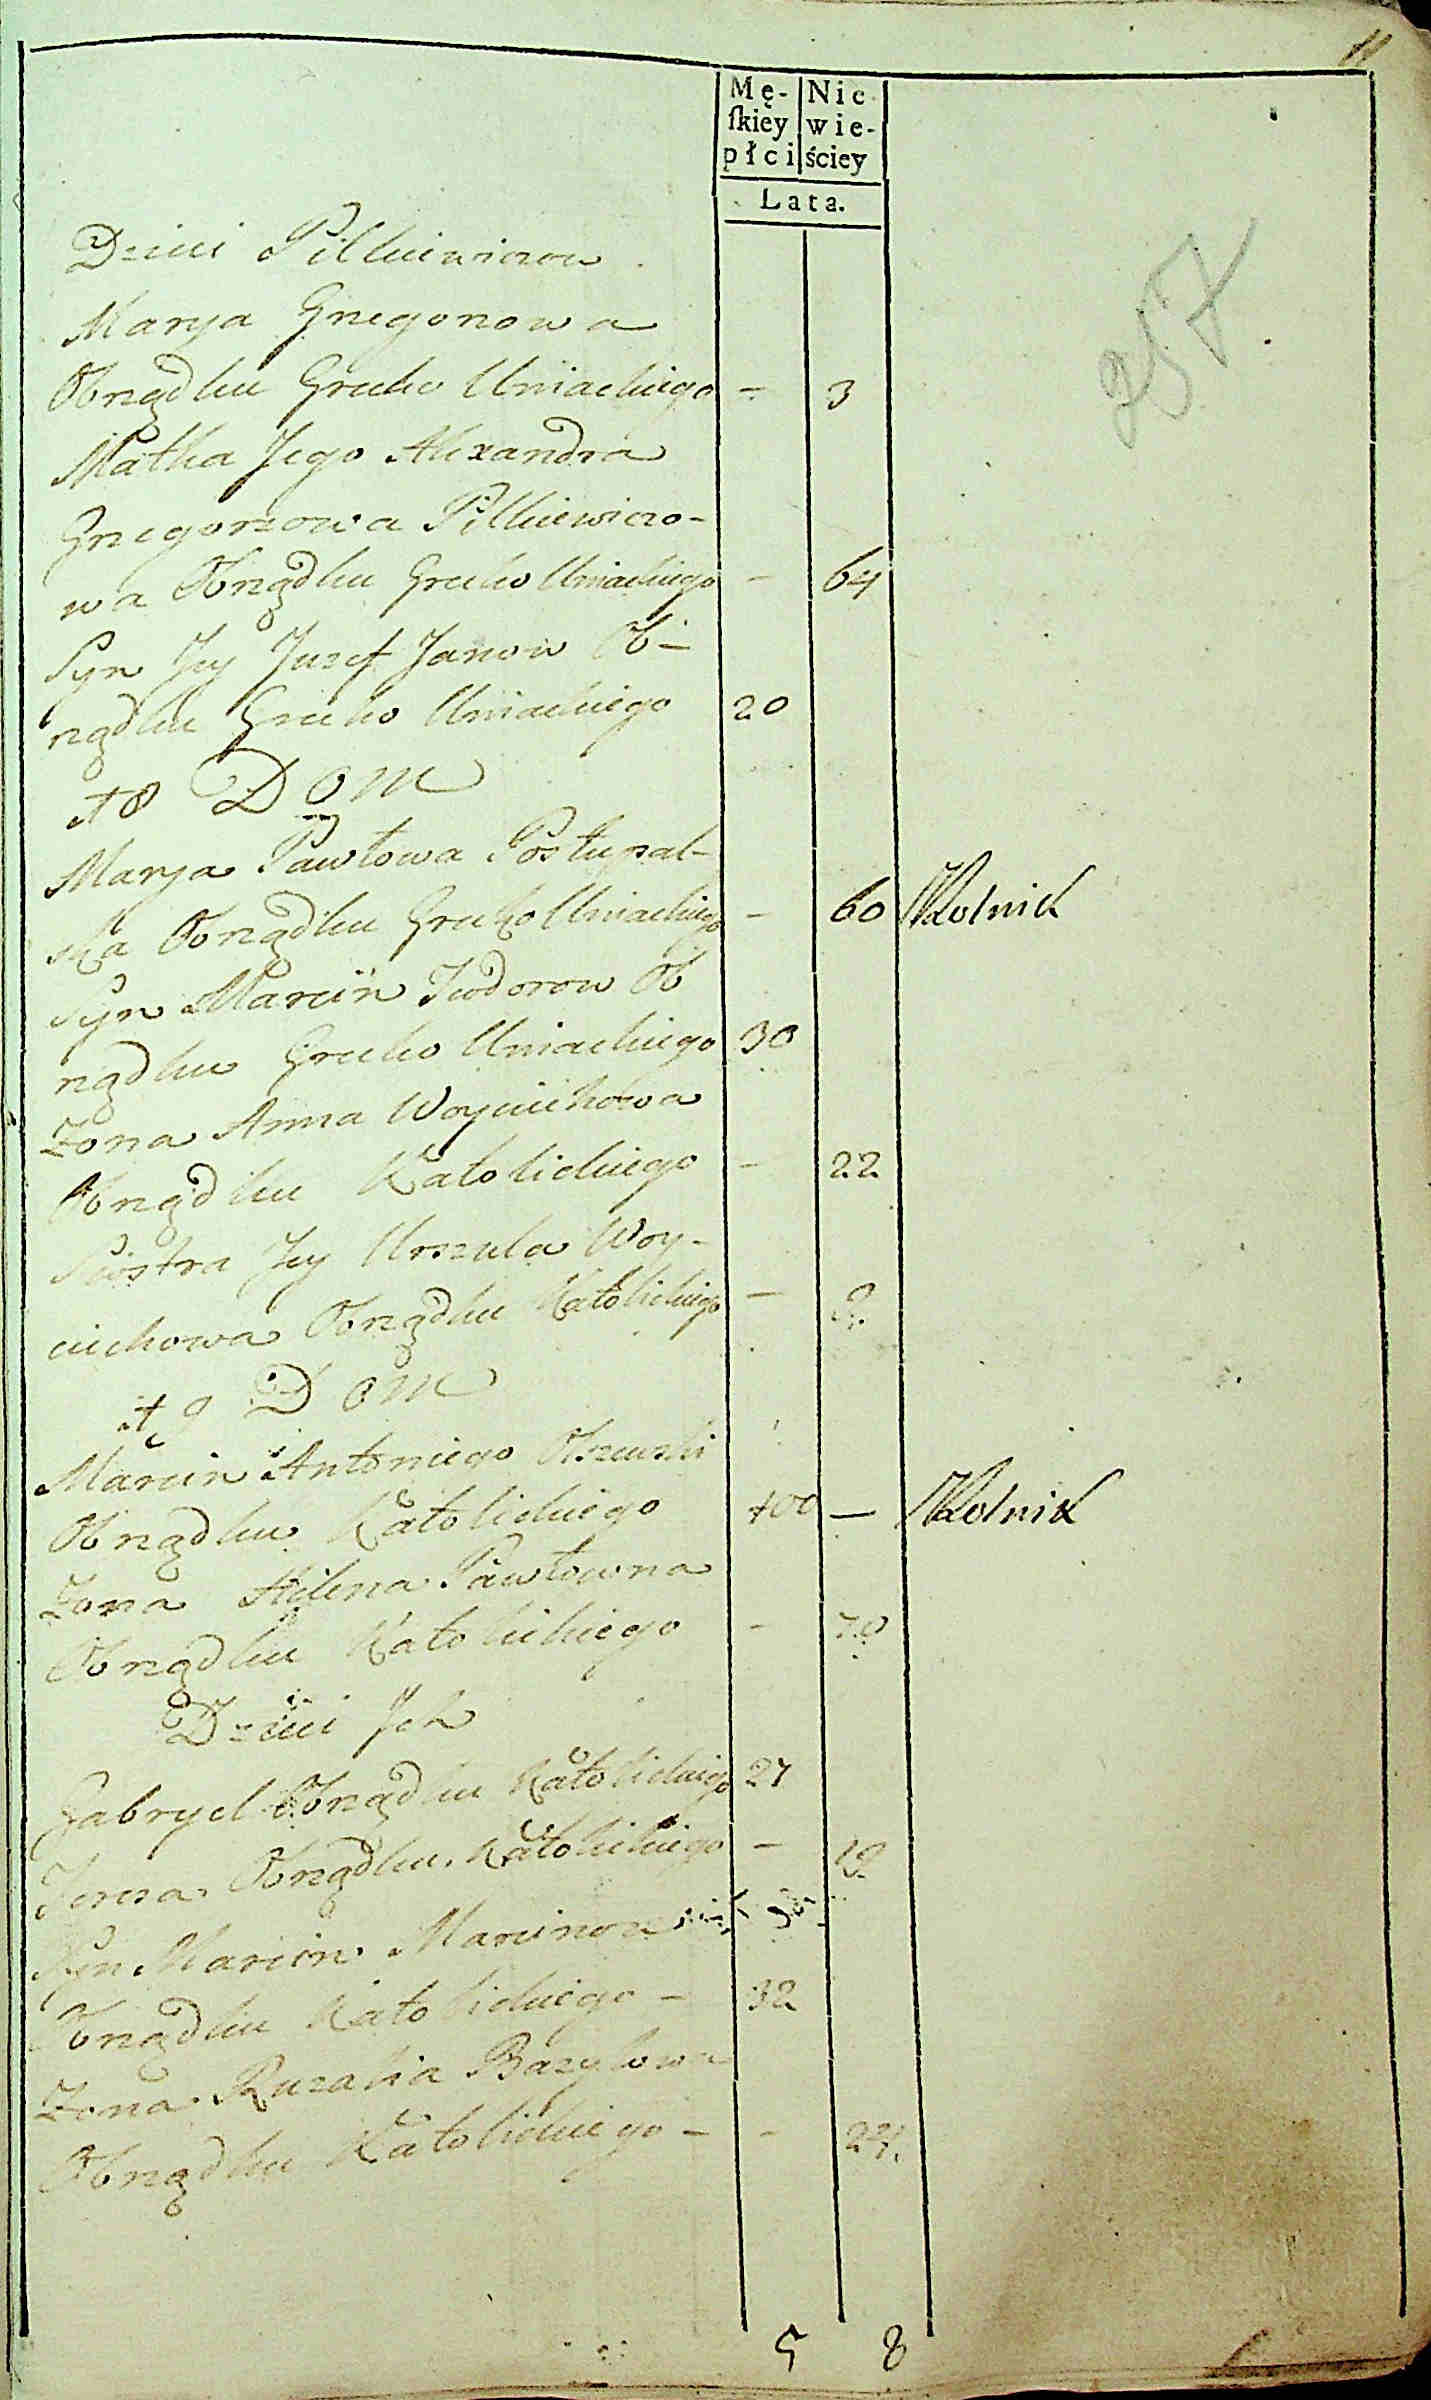 11
Mę- Nie
ſkiey wie-
płci ściey
Lata.
257
Dzieci Pilkiewiczow
Marya Gregorowa
Obrządku Greko Uniackiego - 3
Matka Jego Alexandra
Gregorzowa Pilkiewiczo-
wa Obrządku Greko Uniackiego - 64
Syn Jey Juzef Janow Ob-
rządku Greko Uniackiego 20
18 Dom
Marya Pawłowa Postupal-
ska Obrządku Greko Uniackiego - 60 Rolnik
Syn Marcin Teodorow Ob
rządku Greko Uniackiego 30
Żona Anna Woyciechowa
Obrządku Katolickiego - 22
Siostra Jey Urszula Woy-
ciechowa Obrządku Katolickiego - 9.
19 Dom
Marcin Antoniego Olszewski
Obrządku Katolickiego 100 — Rolnik
Żona Helena Pawłowna
Obrządku Katolickiego - 70
Dzieci Ich
Gabryel Obrządku Katolickiego 27
Teresa Obrządku Katolickiego - 19
Syn Marcin Marcinow
Obrządku Katolickiego - 32
Żona Ruzalia Bazylowa
Obrządku Katolickiego - - 24.
5 8